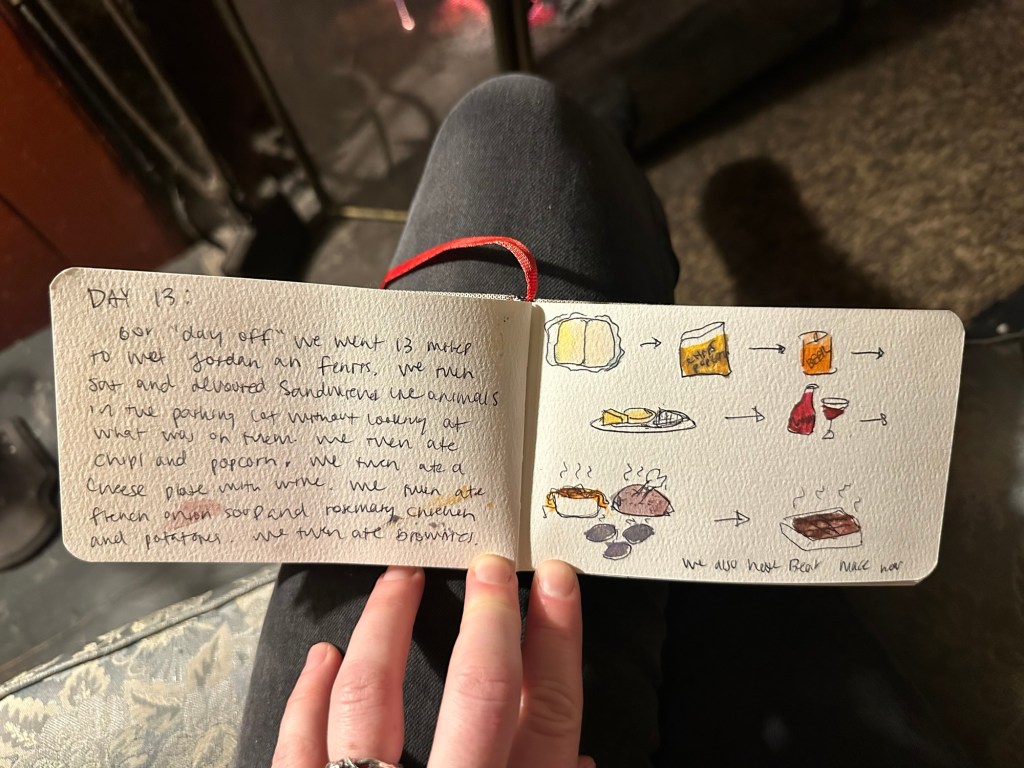 DAY 13:
our "day off" we went 13 miles
to meet Jordan an Fenris. We then
sat and devoured sandwiches like animals
in the parking lot without looking at
what was on them. We then ate
chips and popcorn. We then ate a
cheese plate with wine. We then ate
french onion soup and rosemary chicken
and potatoes. We then ate brownies.
popcorn
We also have Beat Mack now